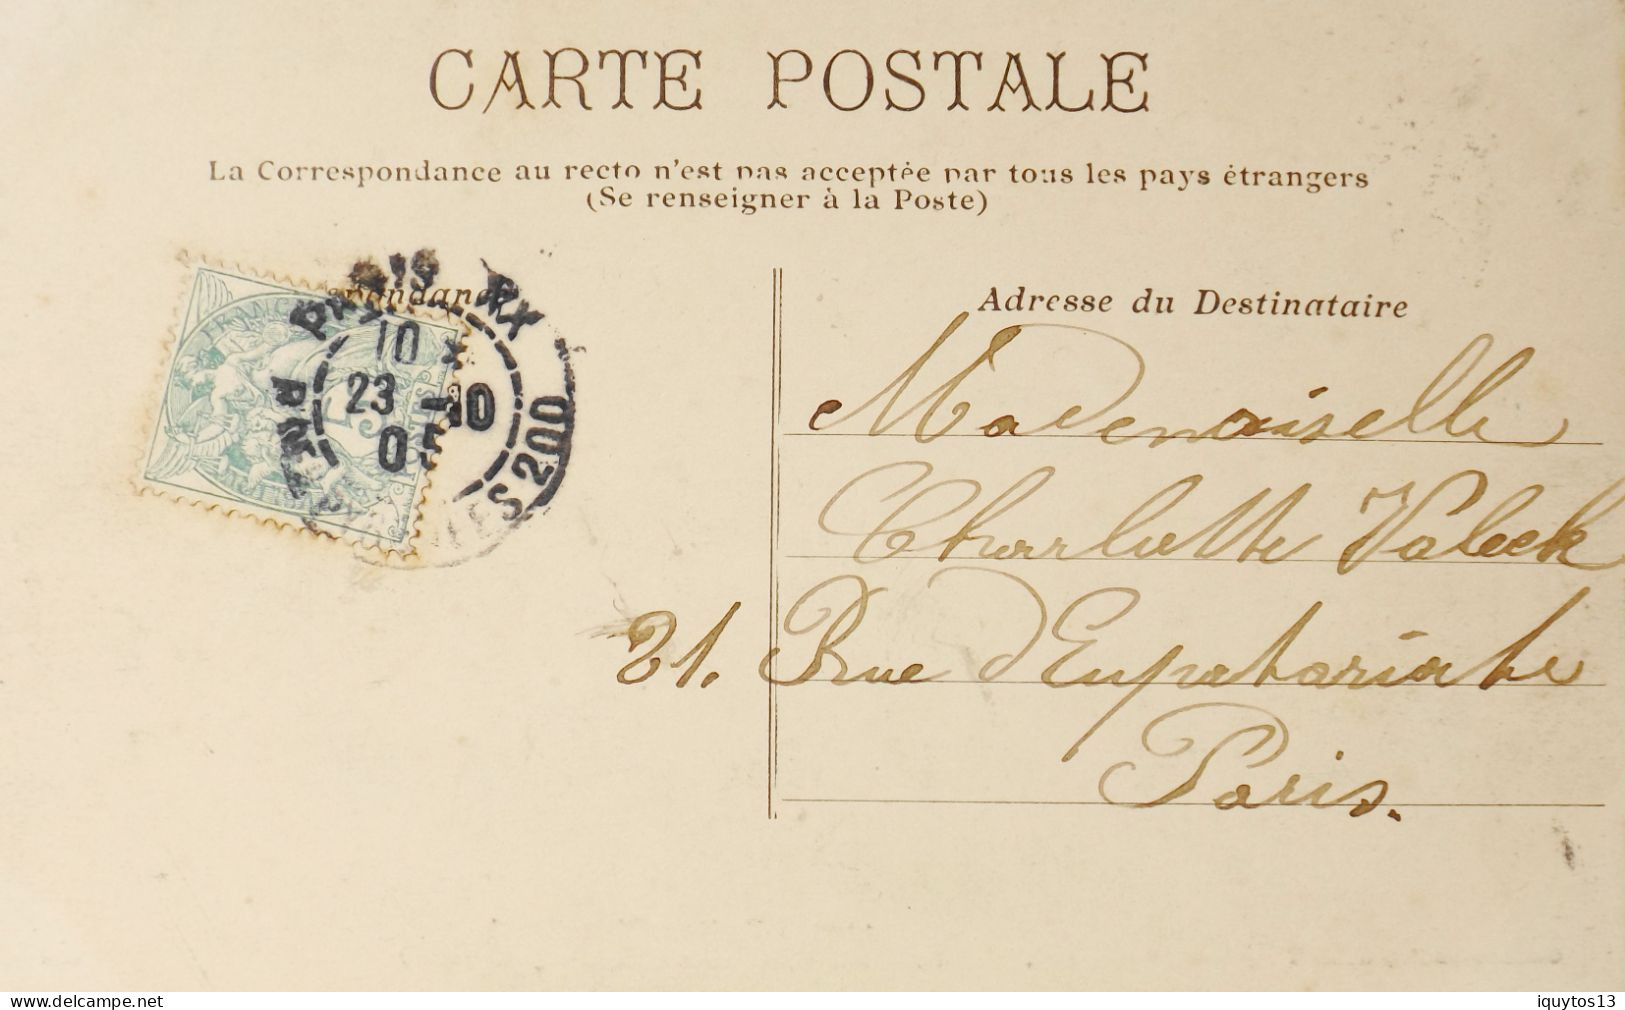 CARTE POSTALE
La Correspondance au recto n'est pas acceptée par tous les pays étrangers
(Se renseigner à la Poste)
PARIS XX
10
23 -10
05
200
FRANÇ
5
POSTES
Adresse du Destinataire
Mademoiselle
Charlotte Valeck
21. Rue d'Eupatoria
Paris.
www.delcampe.net
iquytos13